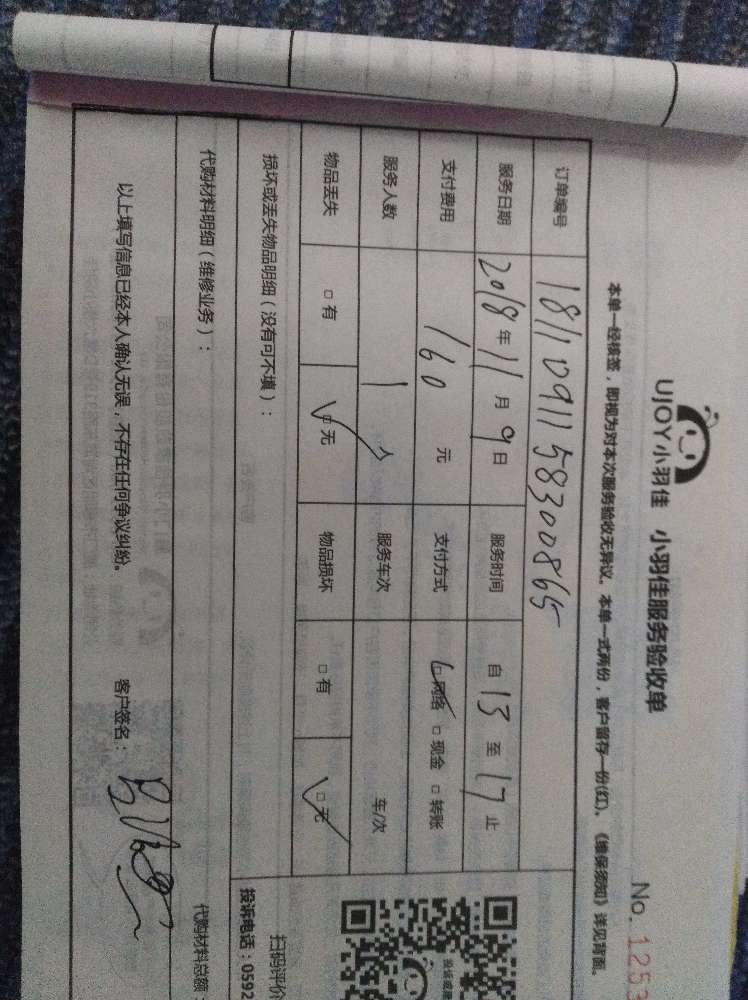 UJOY小羽佳 小羽佳服务验收单
No. 1253
本单一经核签，即视为对本次服务验收无异议。本单一式两份，客户留存一份(红)。《维保须知》详见背面。
订单编号 1811091158300865
服务日期 2018年11月9日 服务时间 自13至17止
支付费用 160元 支付方式 □网络 □现金 □转账
服务人数 1人 服务车次 车/次
物品丢失 □有 □无 物品损坏 □有 □无
损坏或丢失物品明细（没有可不填）：
扫码评价
代购材料明细（维修业务）：
投诉电话：0592
代购材料总额：
以上填写信息已经本人确认无误，不存在任何争议纠纷。 客户签名：